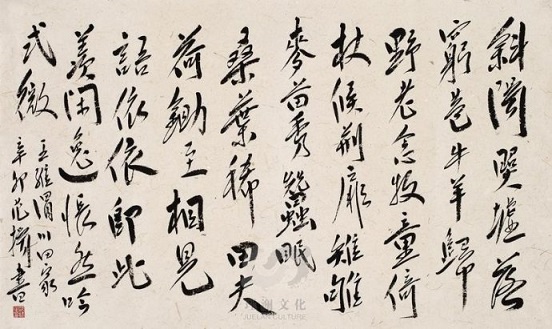 斜陽照墟落
窮巷牛羊歸
野老念牧童倚
杖候荊扉雉雊
麥苗秀蠶眠
桑葉稀田夫
荷鋤至相見
語依依即此
羨閑逸悵然吟
式微
王維渭川田家
辛卯范書
文化
CULTURE